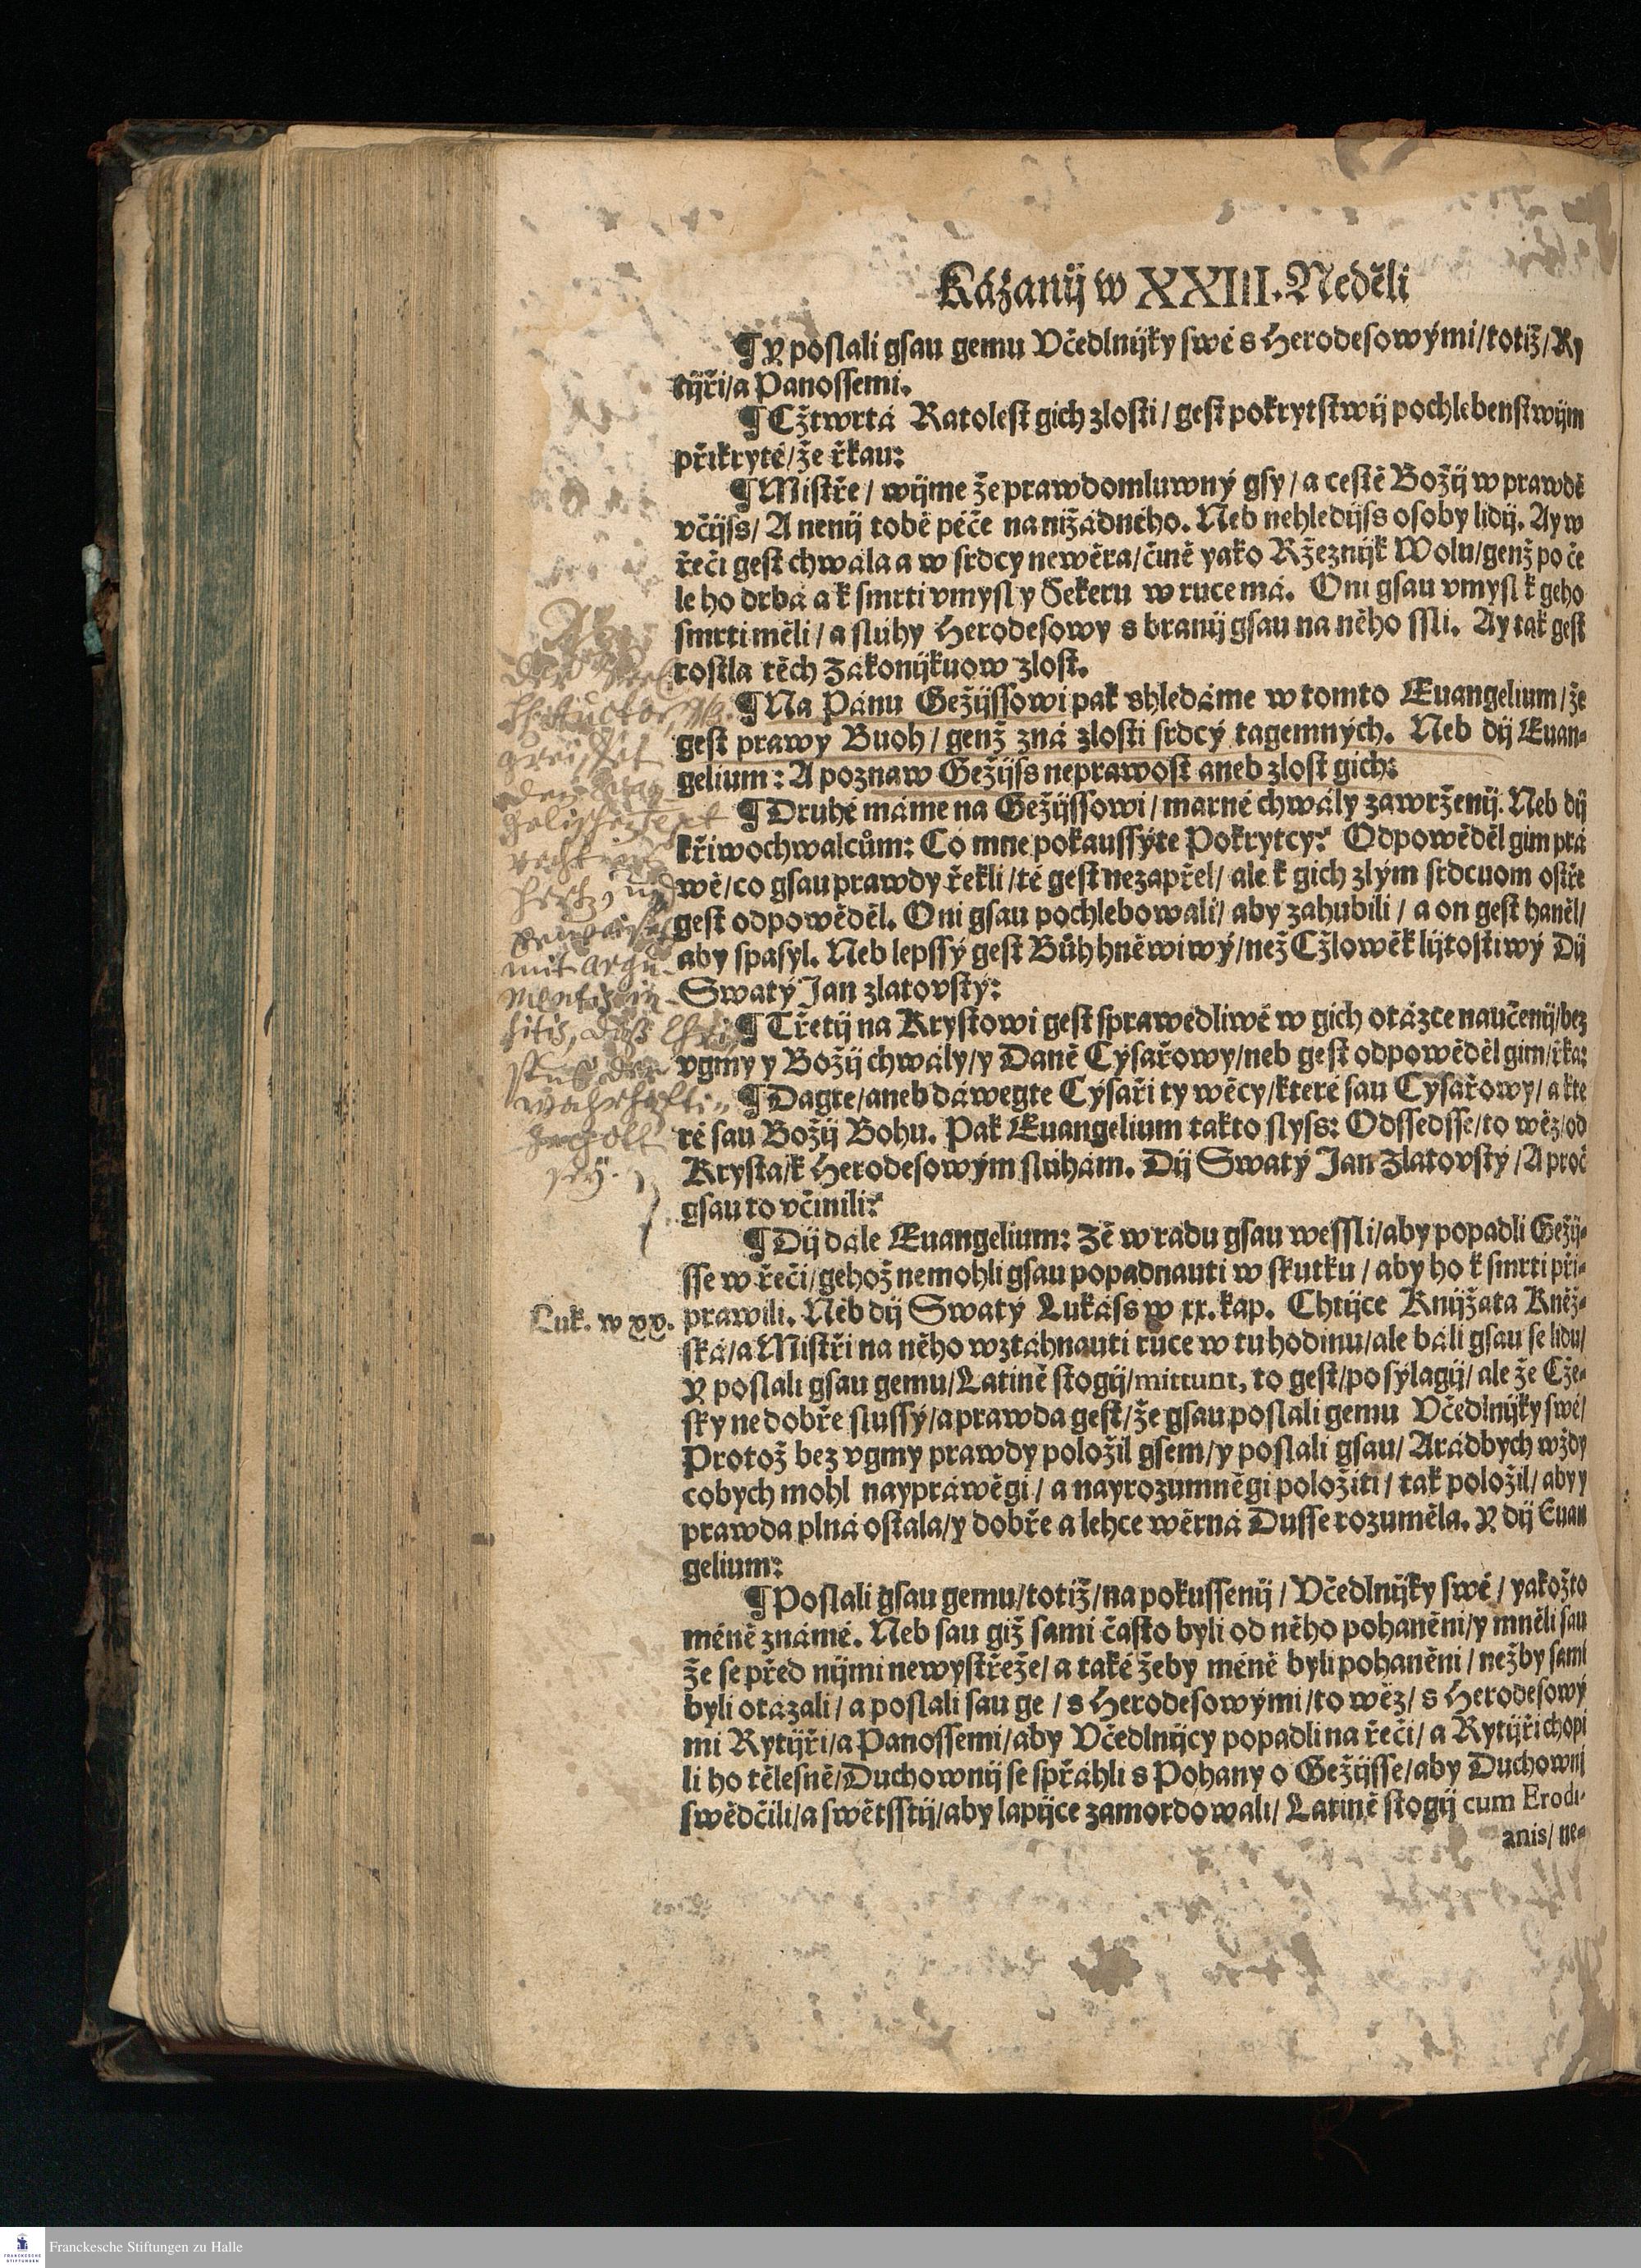 Kázanij w XXIII. Neděli
¶ Y poslali gsau gemu Včedlnijky swé s Herodesowými/totiž/Ry
tijři/a Panossemi.
¶ Cžtwrtá Ratolest gich zlosti/gest pokrytstwij pochlebenstwijm
přikryté/že řkau:
¶ Mistře/wijme že prawdomluwný gsy/a cestě Božij w prawdě
včijss/A nenij tobě péče na nižádného. Neb nehledijss osoby lidij. Ay w
řeči gest chwála a w srdcy newěra/čině yako Ržeznijk Wolu/genž po če
le ho drbá a k smrti vmysl y Sekeru w ruce má. Oni gsau vmysl k geho
smrti měli/a sluhy Herodesowy s branij gsau na něho ssli. Ay tak gest
rostla těch Zákonijkuow zlost.
¶ Na Pánu Gežijssowi pak shledáme w tomto Euangelium/že
gest prawy Buoh/genž zná zlosti srdcý tagemných. Neb dij Euan-
gelium: A poznaw Gežijss neprawost aneb zlost gich:
¶ Druhé máme na Gežijssowi/marné chwály zawrženij. Neb dij
křiwochwalcům: Co mne pokaussýte Pokrytcy? Odpowěděl gim prá
wě/co gsau prawdy řekli/té gest nezapřel/ale k gich zlým srdcuom ostře
gest odpowěděl. Oni gsau pochlebowali/aby zahubili/a on gest haněl/
aby spasyl. Neb lepssý gest Bůh hněwiwý/než Cžlowěk lijtostiwý Dij
Swatý Jan zlatovstý:
¶ Třetij na Krystowi gest sprawedliwé w gich otázce naučenij/bez
vgmy y Božij chwály/y Daně Cýsařowy/neb gest odpowěděl gim/řka:
¶ Dagte/aneb dáwegte Cýsaři ty wěcy/které sau Cýsařowy/a kte
ré sau Božij Bohu. Pak Euangelium takto slyss: Odssedsse/to wěz/od
Krysta/k Herodesowým sluhám. Dij Swatý Jan Zlatovstý/A proč
gsau to včinili?
¶ Dij dále Euangelium: Zě w radu gsau wessli/aby popadli Gežij-
sse w řeči/gehož nemohli gsau popadnauti w skutku/aby ho k smrti při-
Luk. w xx.
prawili. Neb dij Swatý Lukáss w xx. kap. Chtijce Knijžata Kněž-
ská/a Mistři na něho wztáhnauti ruce w tu hodinu/ale báli gsau se lidu/
Y poslali gsau gemu/Latině stogij/mittunt, to gest/posýlagij/ale že Cže-
sky ne dobře slussý/a prawda gest/že gsau poslali gemu Včedlnijky swé/
Protož bez vgmy prawdy položil gsem/y poslali gsau/A rádbych wždy
cobych mohl nayprawěgi/a nayrozumněgi položiti/tak položil/aby y
prawda plná ostala/y dobře a lehce wěrná Dusse rozuměla. Y dij Euan
gelium:
¶ Poslali gsau gemu/totiž/na pokussenij/Včedlnijky swé/yakožto
méně známé. Neb sau giž sami často byli od něho pohaněni/y mněli sau
že se před nijmi newystřeže/a také žeby méně byli pohaněni/nežby sami
byli otázali/a poslali sau ge/s Herodesowými/to wěz/s Herodesowý
mi Rytijři/a Panossemi/aby Včedlnijcy popadli na řeči/a Rytijři chopi
li ho tělesně/Duchownij se spřáhli s Pohany o Gežijsse/aby Duchownij
swědčili/a swětsstij/aby lapijce zamordowali/Latině stogij cum Erodi-
anis/ ne-
der
Text
hertz, und
mit argu-
mentis in
Franckesche Stiftungen zu Halle